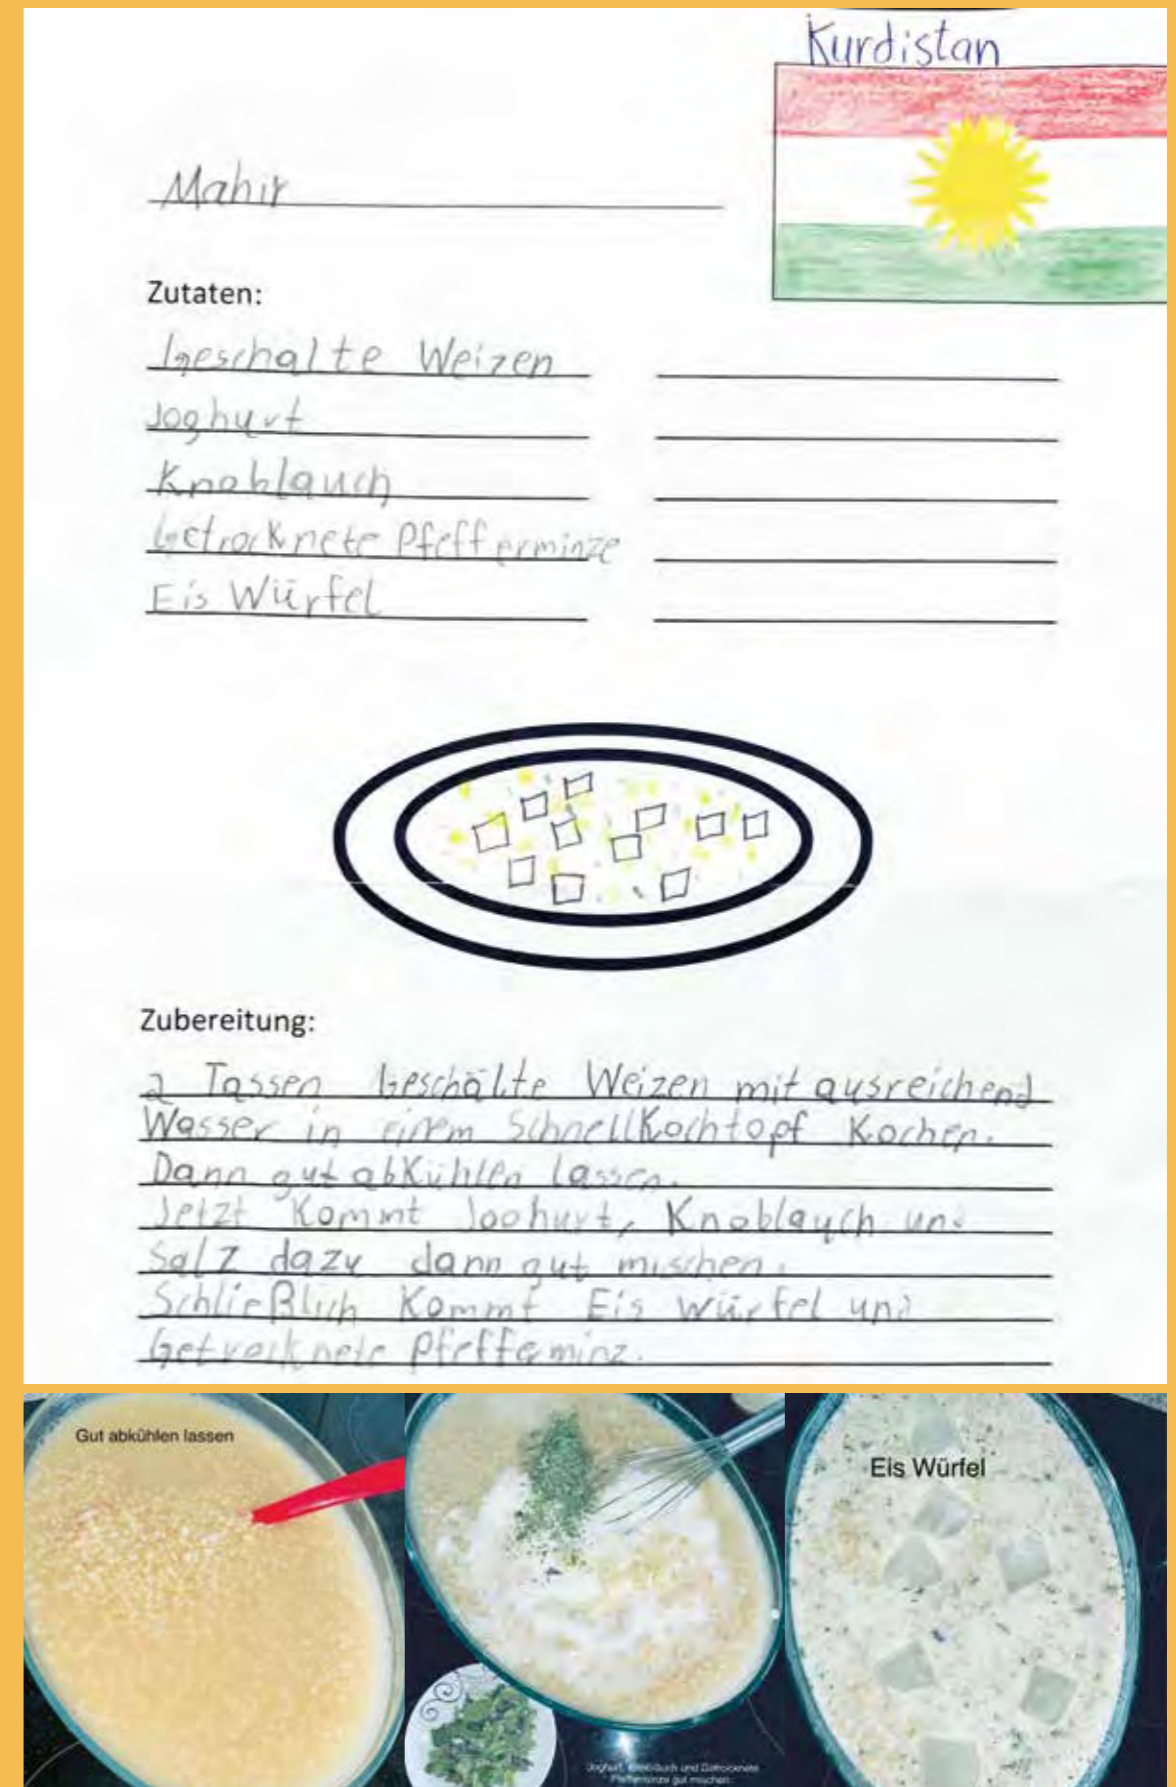 Kurdistan
Mahir
Zutaten:
Geschalte Weizen
Joghurt
Knoblauch
Getrocknete Pfefferminze
Eis Würfel
Zubereitung:
2 Tassen Geschälte Weizen mit ausreichend
Wasser in einem Schnellkochtopf Kochen.
Dann gut abkühlen lassen.
Jetzt Kommt Joghurt, Knoblauch und
Salz dazu dann gut mischen.
Schließlich Kommt Eis würfel und
Getrocknete Pfefferminz.
Gut abkühlen lassen
Eis Würfel
Joghurt, Knoblauch und Getrocknete
Pfefferminze gut mischen.